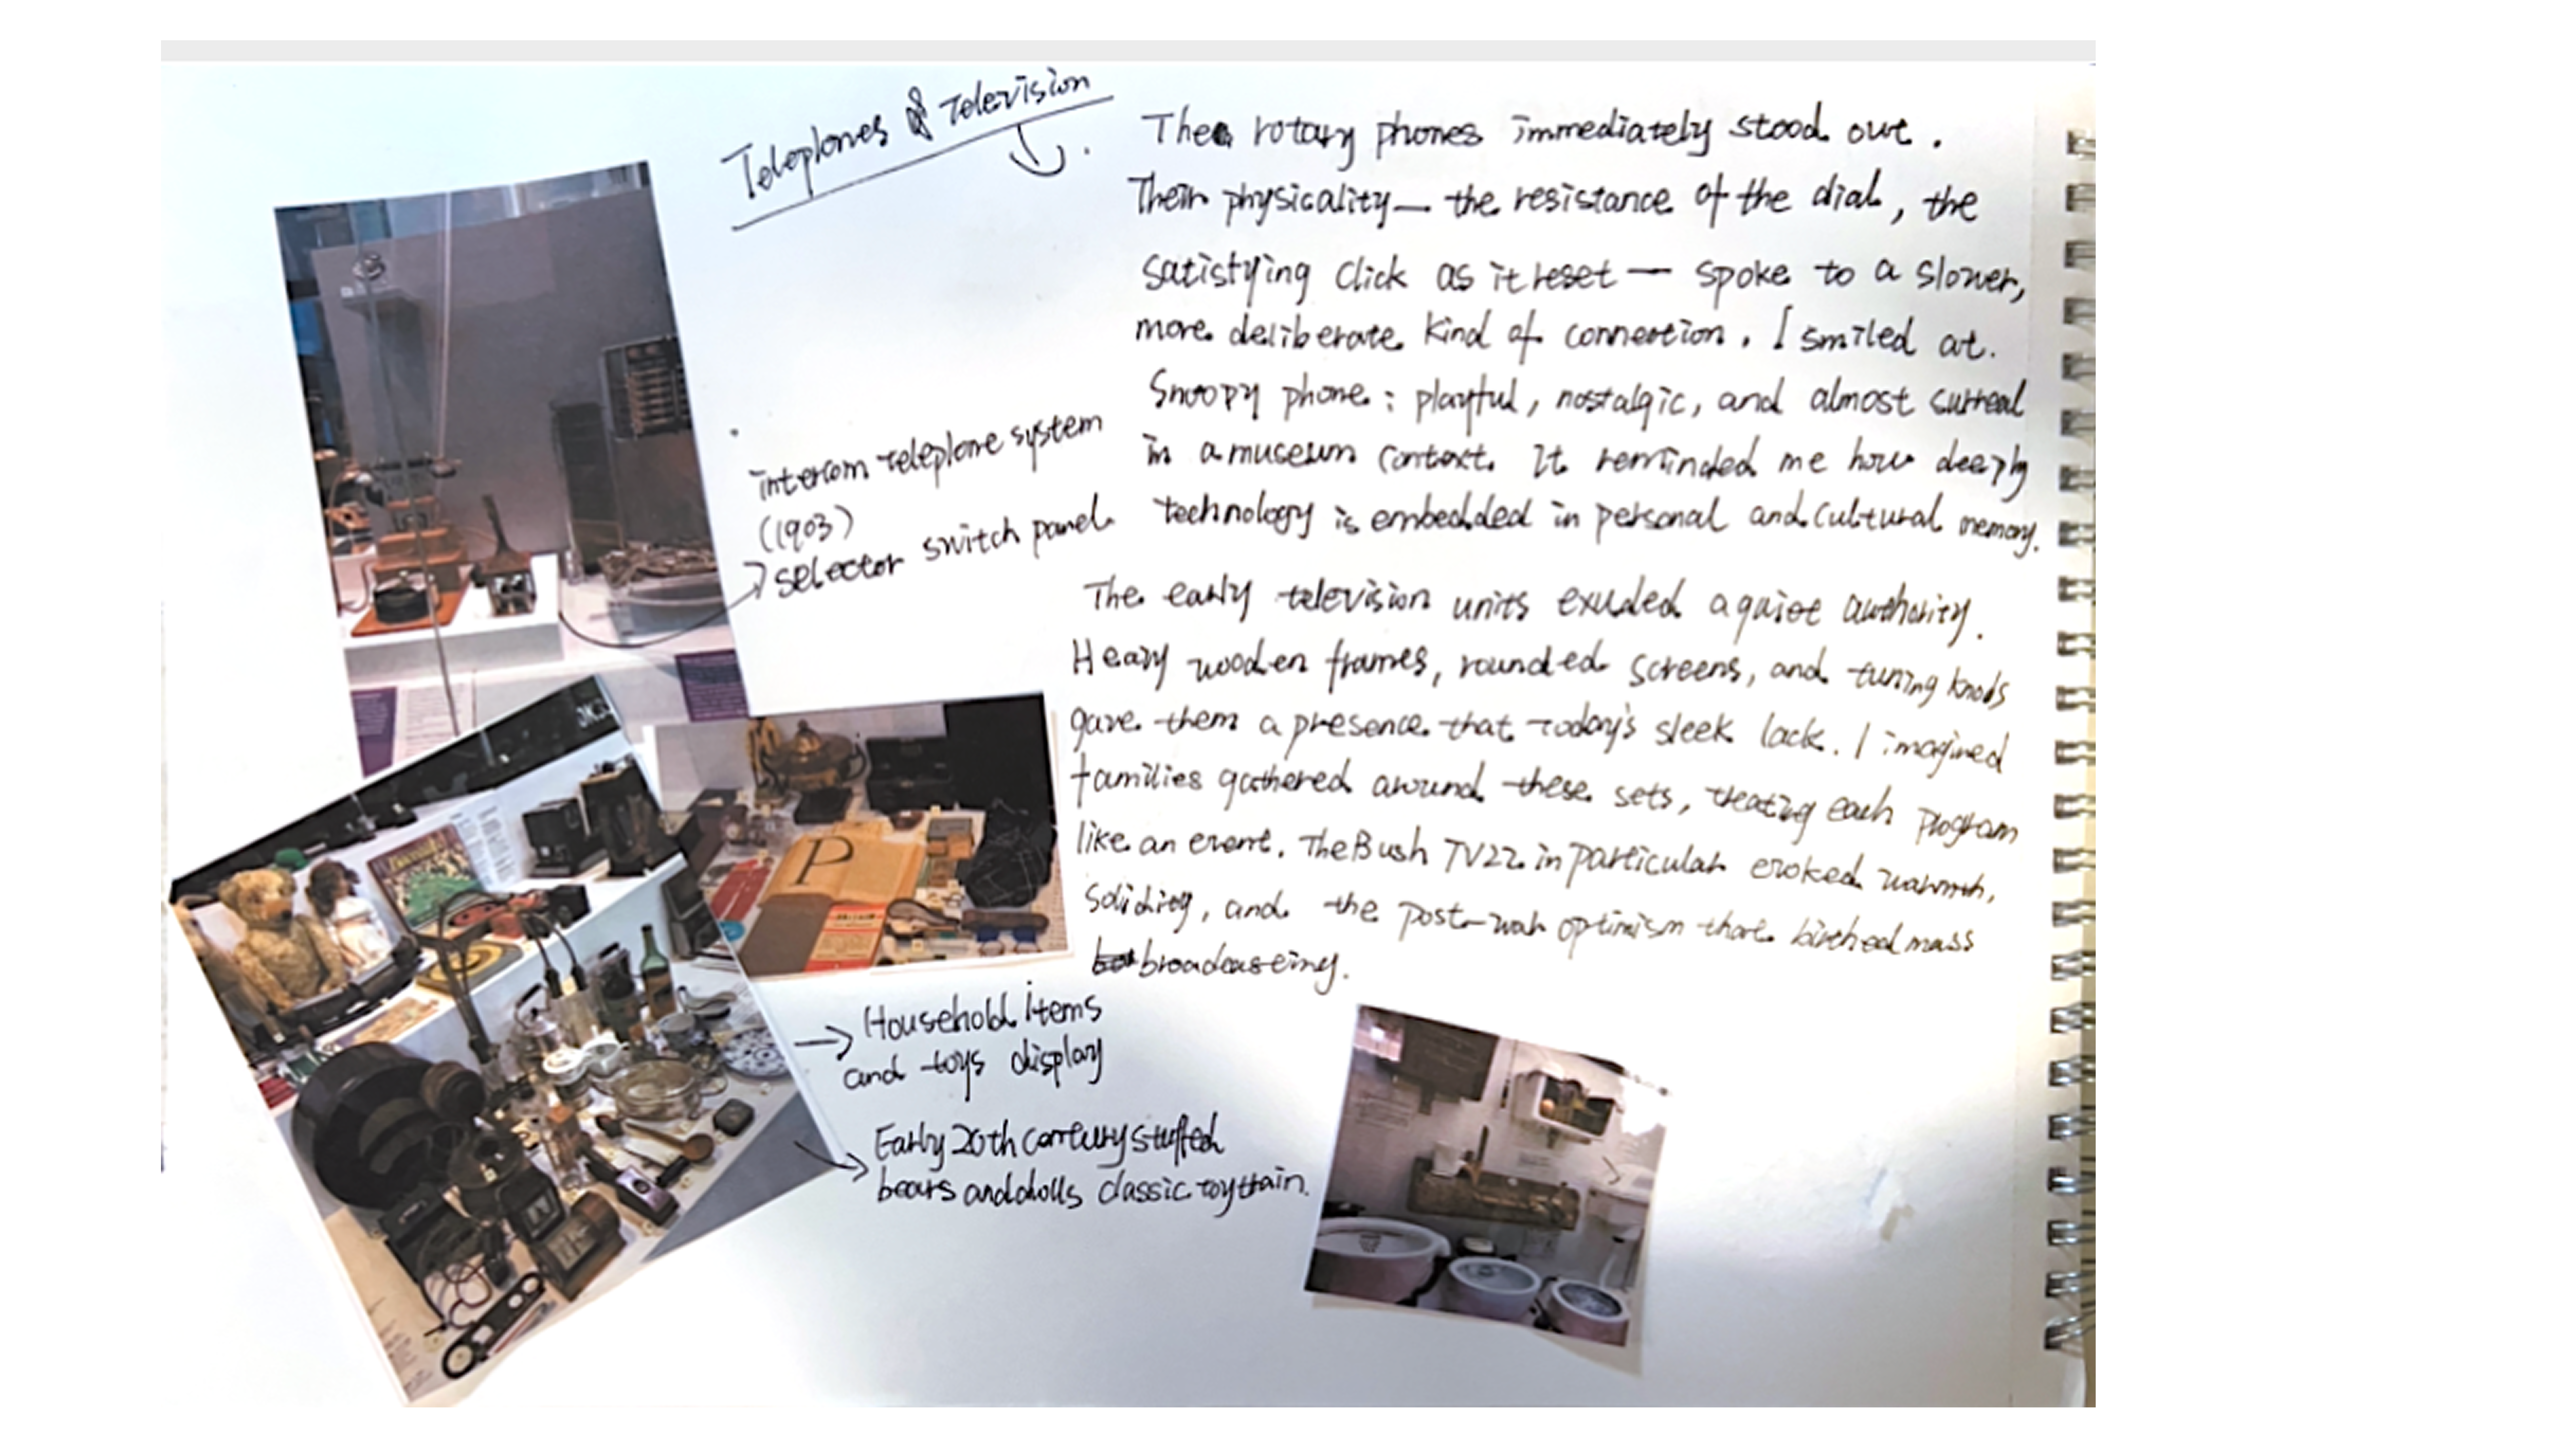 Teleplones & Television
The rotary phones immediately stood out.
Their physicality — the resistance of the dial, the
satisfying click as it reset — spoke to a slower,
more deliberate kind of connection. I smiled at.
Snoopy phone: playful, nostalgic, and almost surreal
in a museum context. It reminded me how deeply
technology is embedded in personal and cultural memory.
The early television units exuded a quiet authority.
Heavy wooden frames, rounded screens, and tuning knobs
gave them a presence that today's sleek lack. I imagined
families gathered around these sets, treating each program
like an event. The Bush TV22 in particular evoked warmth,
solidity, and the post-war optimism that birthed mass
broadcasting.
intercom teleplone system
(1903)
selector switch panel
P
Household items
and toys display
Early 20th century stuffed
bears and dolls classic toy train.